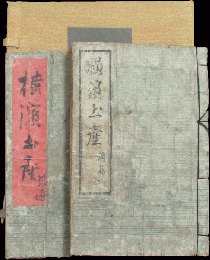 横濱土産
横濱土産